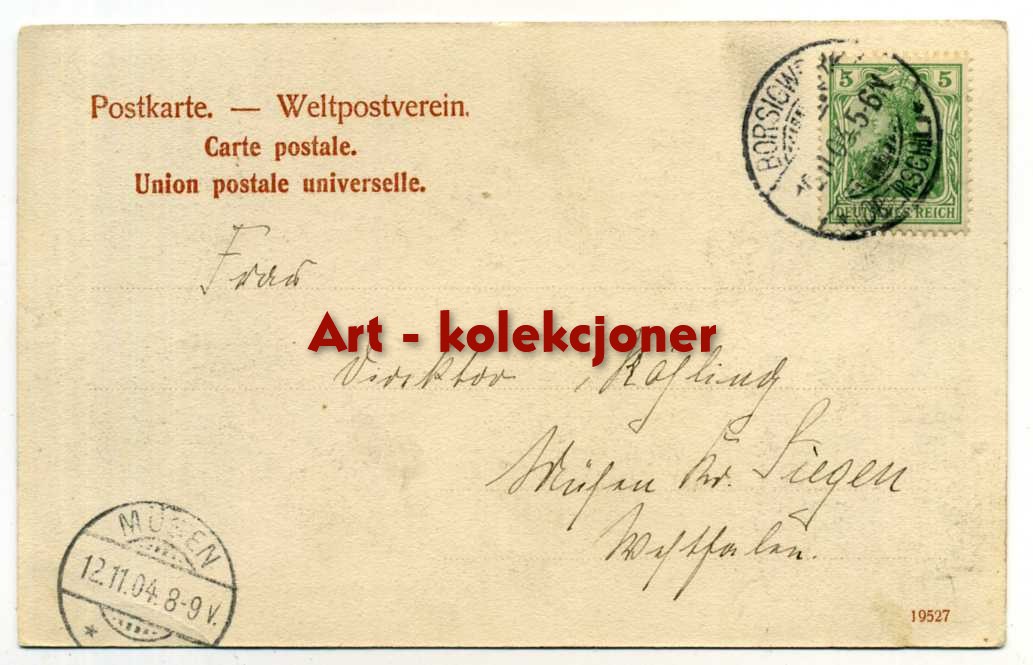 Postkarte. — Weltpostverein.
Carte postale.
Union postale universelle.
BORSIGW
11.04.5-6N.
5 5
DEUTSCHES REICH
Frau
Art - kolekcjoner
Direktor
Müsen Kr. Siegen
Westfalen.
MÜSEN
12.11.04.8-9V.
*
19527